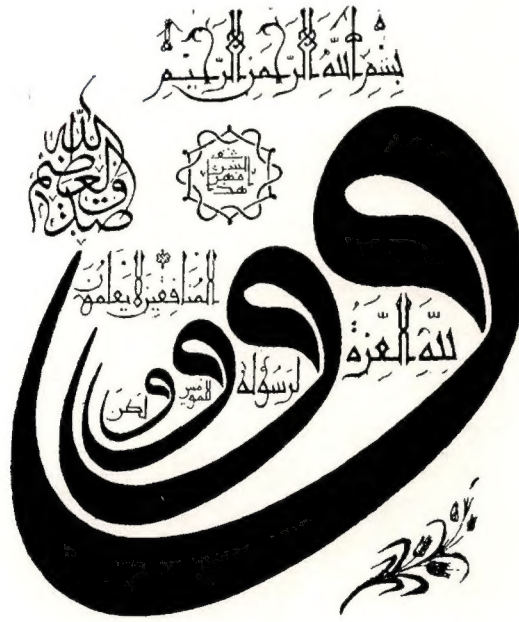 بِسْمِ اللّٰهِ الرَّحْمٰنِ الرَّحِيْمِ
صدق الله العظيم
وللّٰهِ الْعِزَّةُ
ولرسوله
وللمومنين
ولكن
المنافقين لا يعلمون